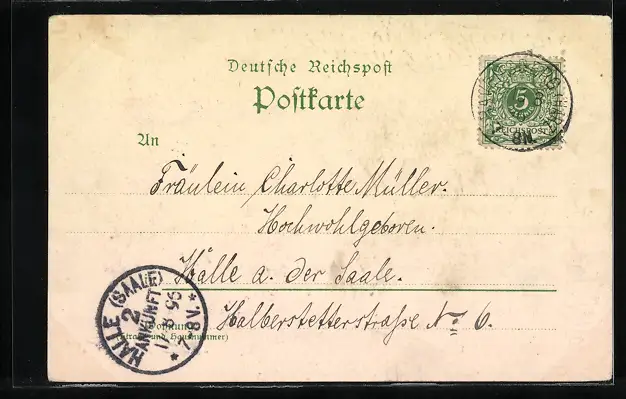 Deutsche Reichspost
Postkarte
5
REICHSPOST
8N
An
Fräulein Charlotte Müller.
Hochwohlgeboren.
Halle a. der Saale.
Halberstetterstraße No 6.
Wohnung
(Straße und Hausnummer)
HALLE (SAALE)
2
ANKUNFT
7-8 V.